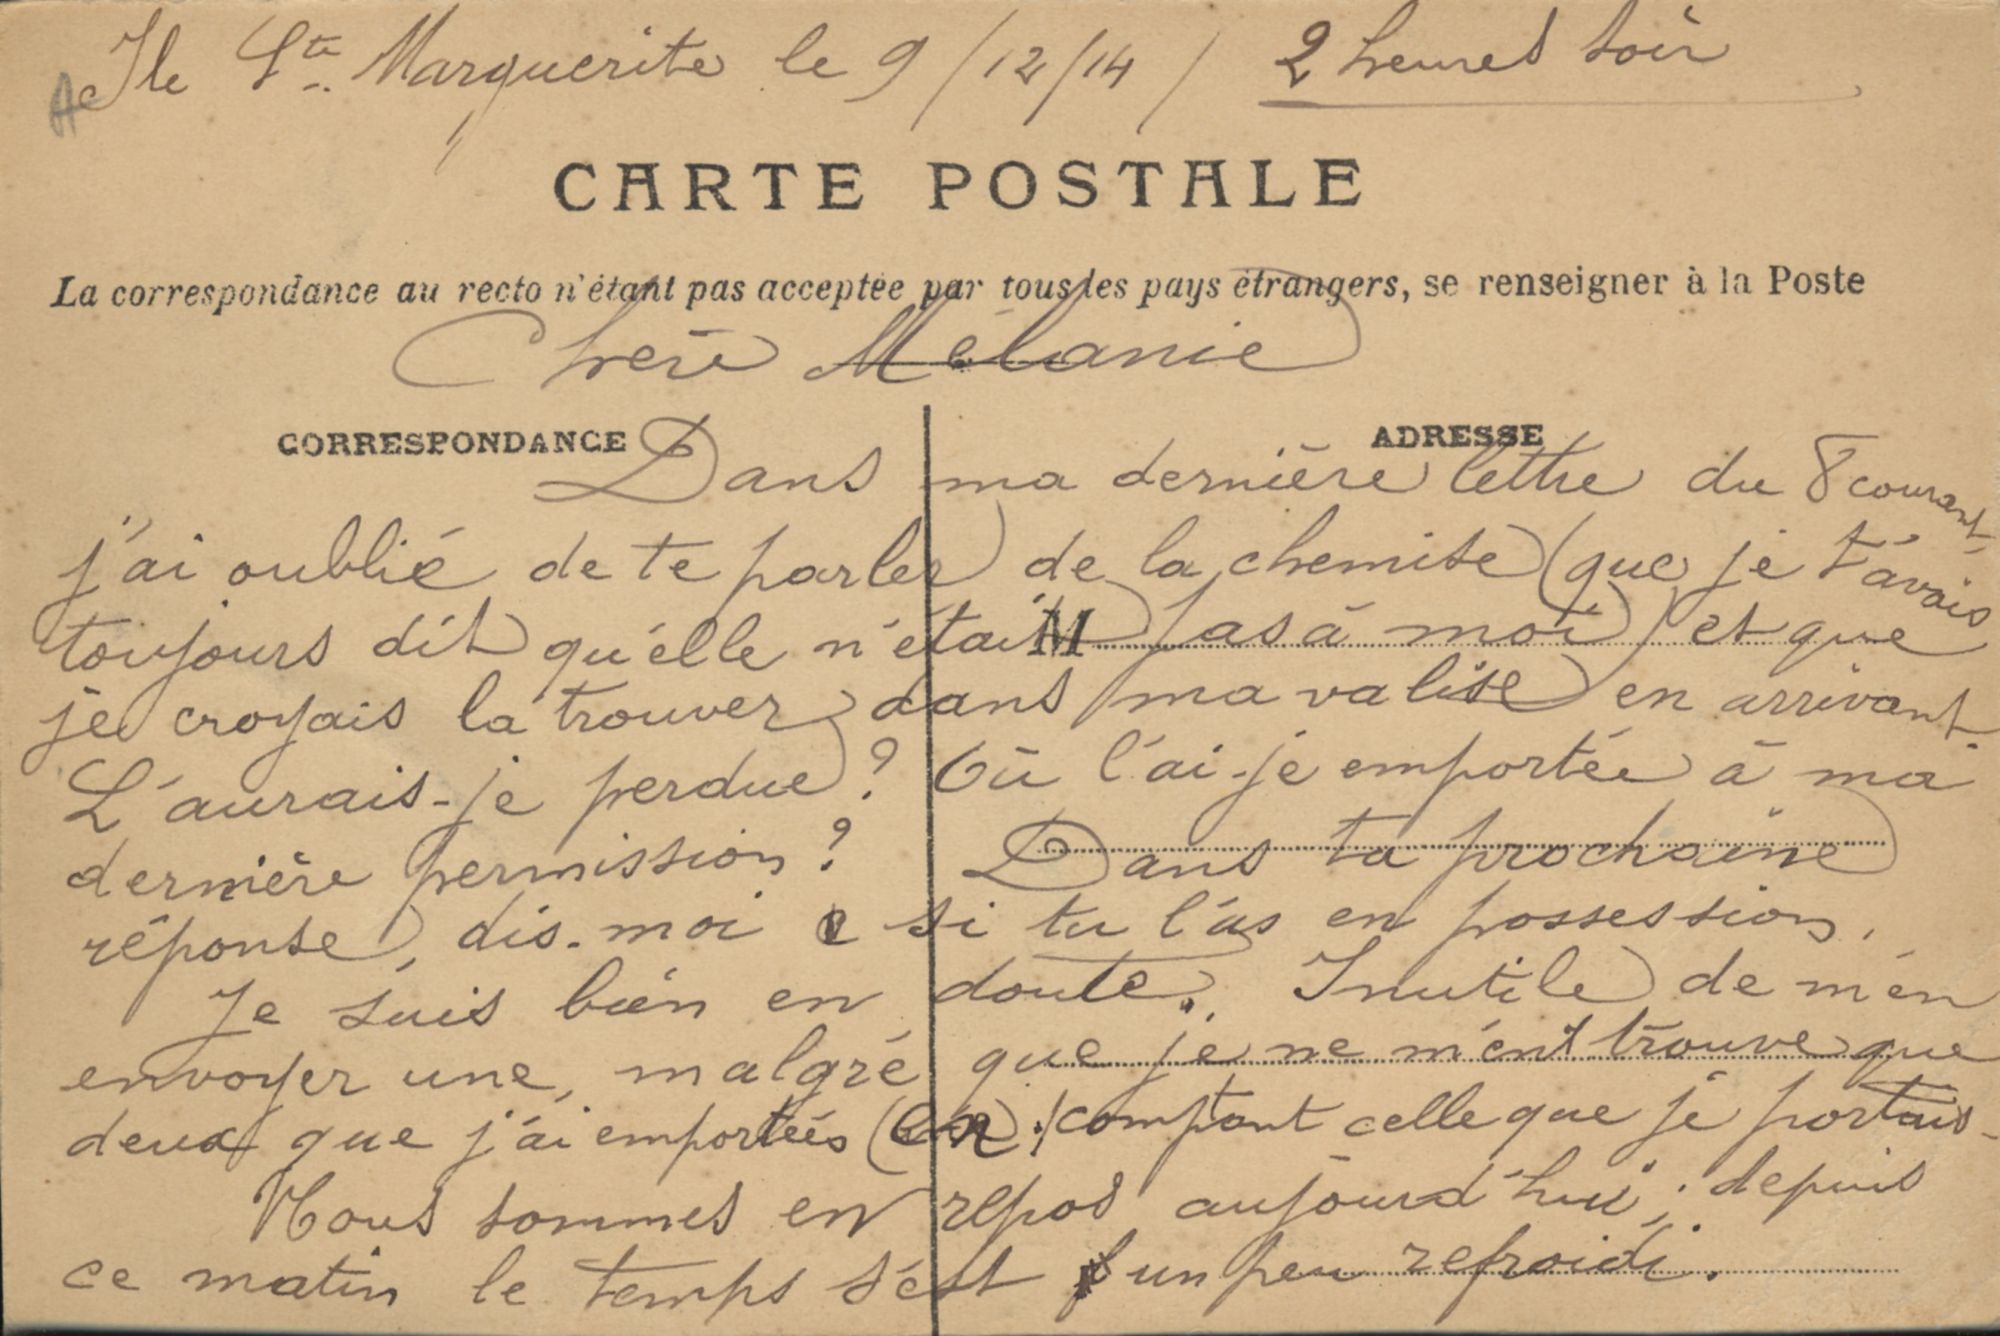 Ile Ste Marguerite le 9/12/14/ 2 heures soir
CARTE POSTALE
La correspondance au recto n'étant pas acceptée par tous les pays étrangers, se renseigner à la Poste
Chère Mélanie
CORRESPONDANCE
ADRESSE
Dans ma dernière lettre du 8 courant,
j'ai oublié de te parler de la chemise (que je t'avais
toujours dit qu'elle n'était pas à moi) et que
M
je croyais la trouver dans ma valise en arrivant.
L'aurais-je perdue? Où l'ai-je emportée à ma
dernière permission? Dans ta prochaine
réponse, dis-moi si tu l'as en possession.
Je suis bien en doute. Inutile de m'en
envoyer une, malgré que je ne m'en trouve que
deux que j'ai emportées (en comptant celle que je portais-
Nous sommes en repos aujourd'hui; depuis
ce matin le temps s'est un peu refroidi.